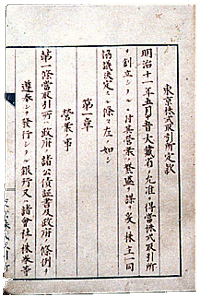 東京株式取引所定款
明治十一年五月　日大蔵省ノ允准ヲ得當株式取引所
ヲ創立シタルニ付其営業ノ繁盛ヲ謀　為株主一同
協議決定シタル條々左ノ如シ
第一章
営業ノ事
第一條當取引所ハ政府ノ諸公債証書及政府ノ條例ヲ
遵奉シテ発行シタル銀行又ハ諸會社ノ株券等